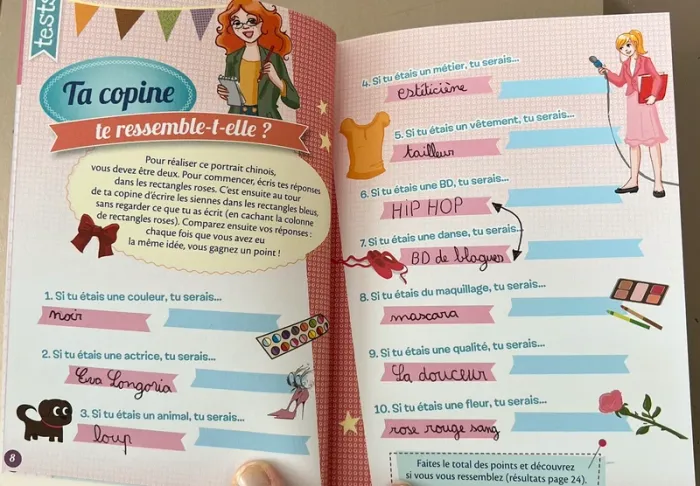 tests
Ta copine
te ressemble-t-elle ?
Pour réaliser ce portrait chinois,
vous devez être deux. Pour commencer, écris tes réponses
dans les rectangles roses. C'est ensuite au tour
de ta copine d'écrire les siennes dans les rectangles bleus,
sans regarder ce que tu as écrit (en cachant la colonne
de rectangles roses). Comparez ensuite vos réponses :
chaque fois que vous avez eu
la même idée, vous gagnez un point !
1. Si tu étais une couleur, tu serais...
noir
2. Si tu étais une actrice, tu serais...
Eva Longoria
3. Si tu étais un animal, tu serais...
loup
8
4. Si tu étais un métier, tu serais...
estiticiène
5. Si tu étais un vêtement, tu serais...
tailleur
6. Si tu étais une BD, tu serais...
HIP HOP
7. Si tu étais une danse, tu serais...
BD de blagues
8. Si tu étais du maquillage, tu serais...
mascara
9. Si tu étais une qualité, tu serais...
La douceur
10. Si tu étais une fleur, tu serais...
rose rouge sang
Faites le total des points et découvrez
si vous vous ressemblez (résultats page 24).